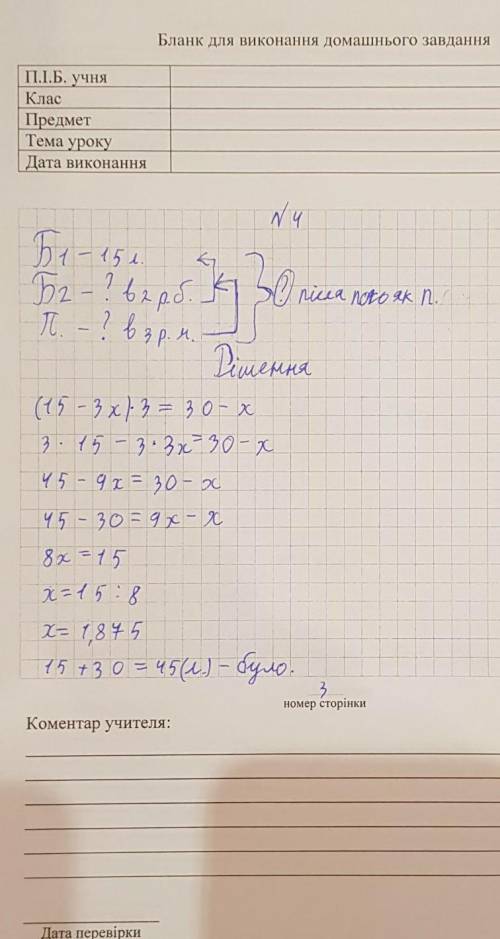 Бланк для виконання домашнього завдання
П.І.Б. учня
Клас
Предмет
Тема уроку
Дата виконання
N 4
Б1 – 15 л.
Б2 – ? в 2 р. б.
П. – ? в 3 р. м.
після як п.
Рішення
(15 – 3х)·3 = 30 – х
3 · 15 – 3 · 3х = 30 – х
45 – 9х = 30 – х
45 – 30 = 9х – х
8х = 15
х = 15 : 8
х = 1,875
15 + 30 = 45(л.) – було.
3
номер сторінки
Коментар учителя:
Дата перевірки